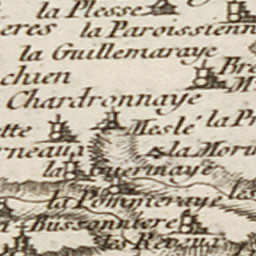 la Plesse
eres la Paroissienn
la Guillemaraye
chien Bre
Chardronnaye
ette Meslé la Pr
rneaux la Mori
la Guerinaye
la Pommeraye les
Bussonniere
les Revaux